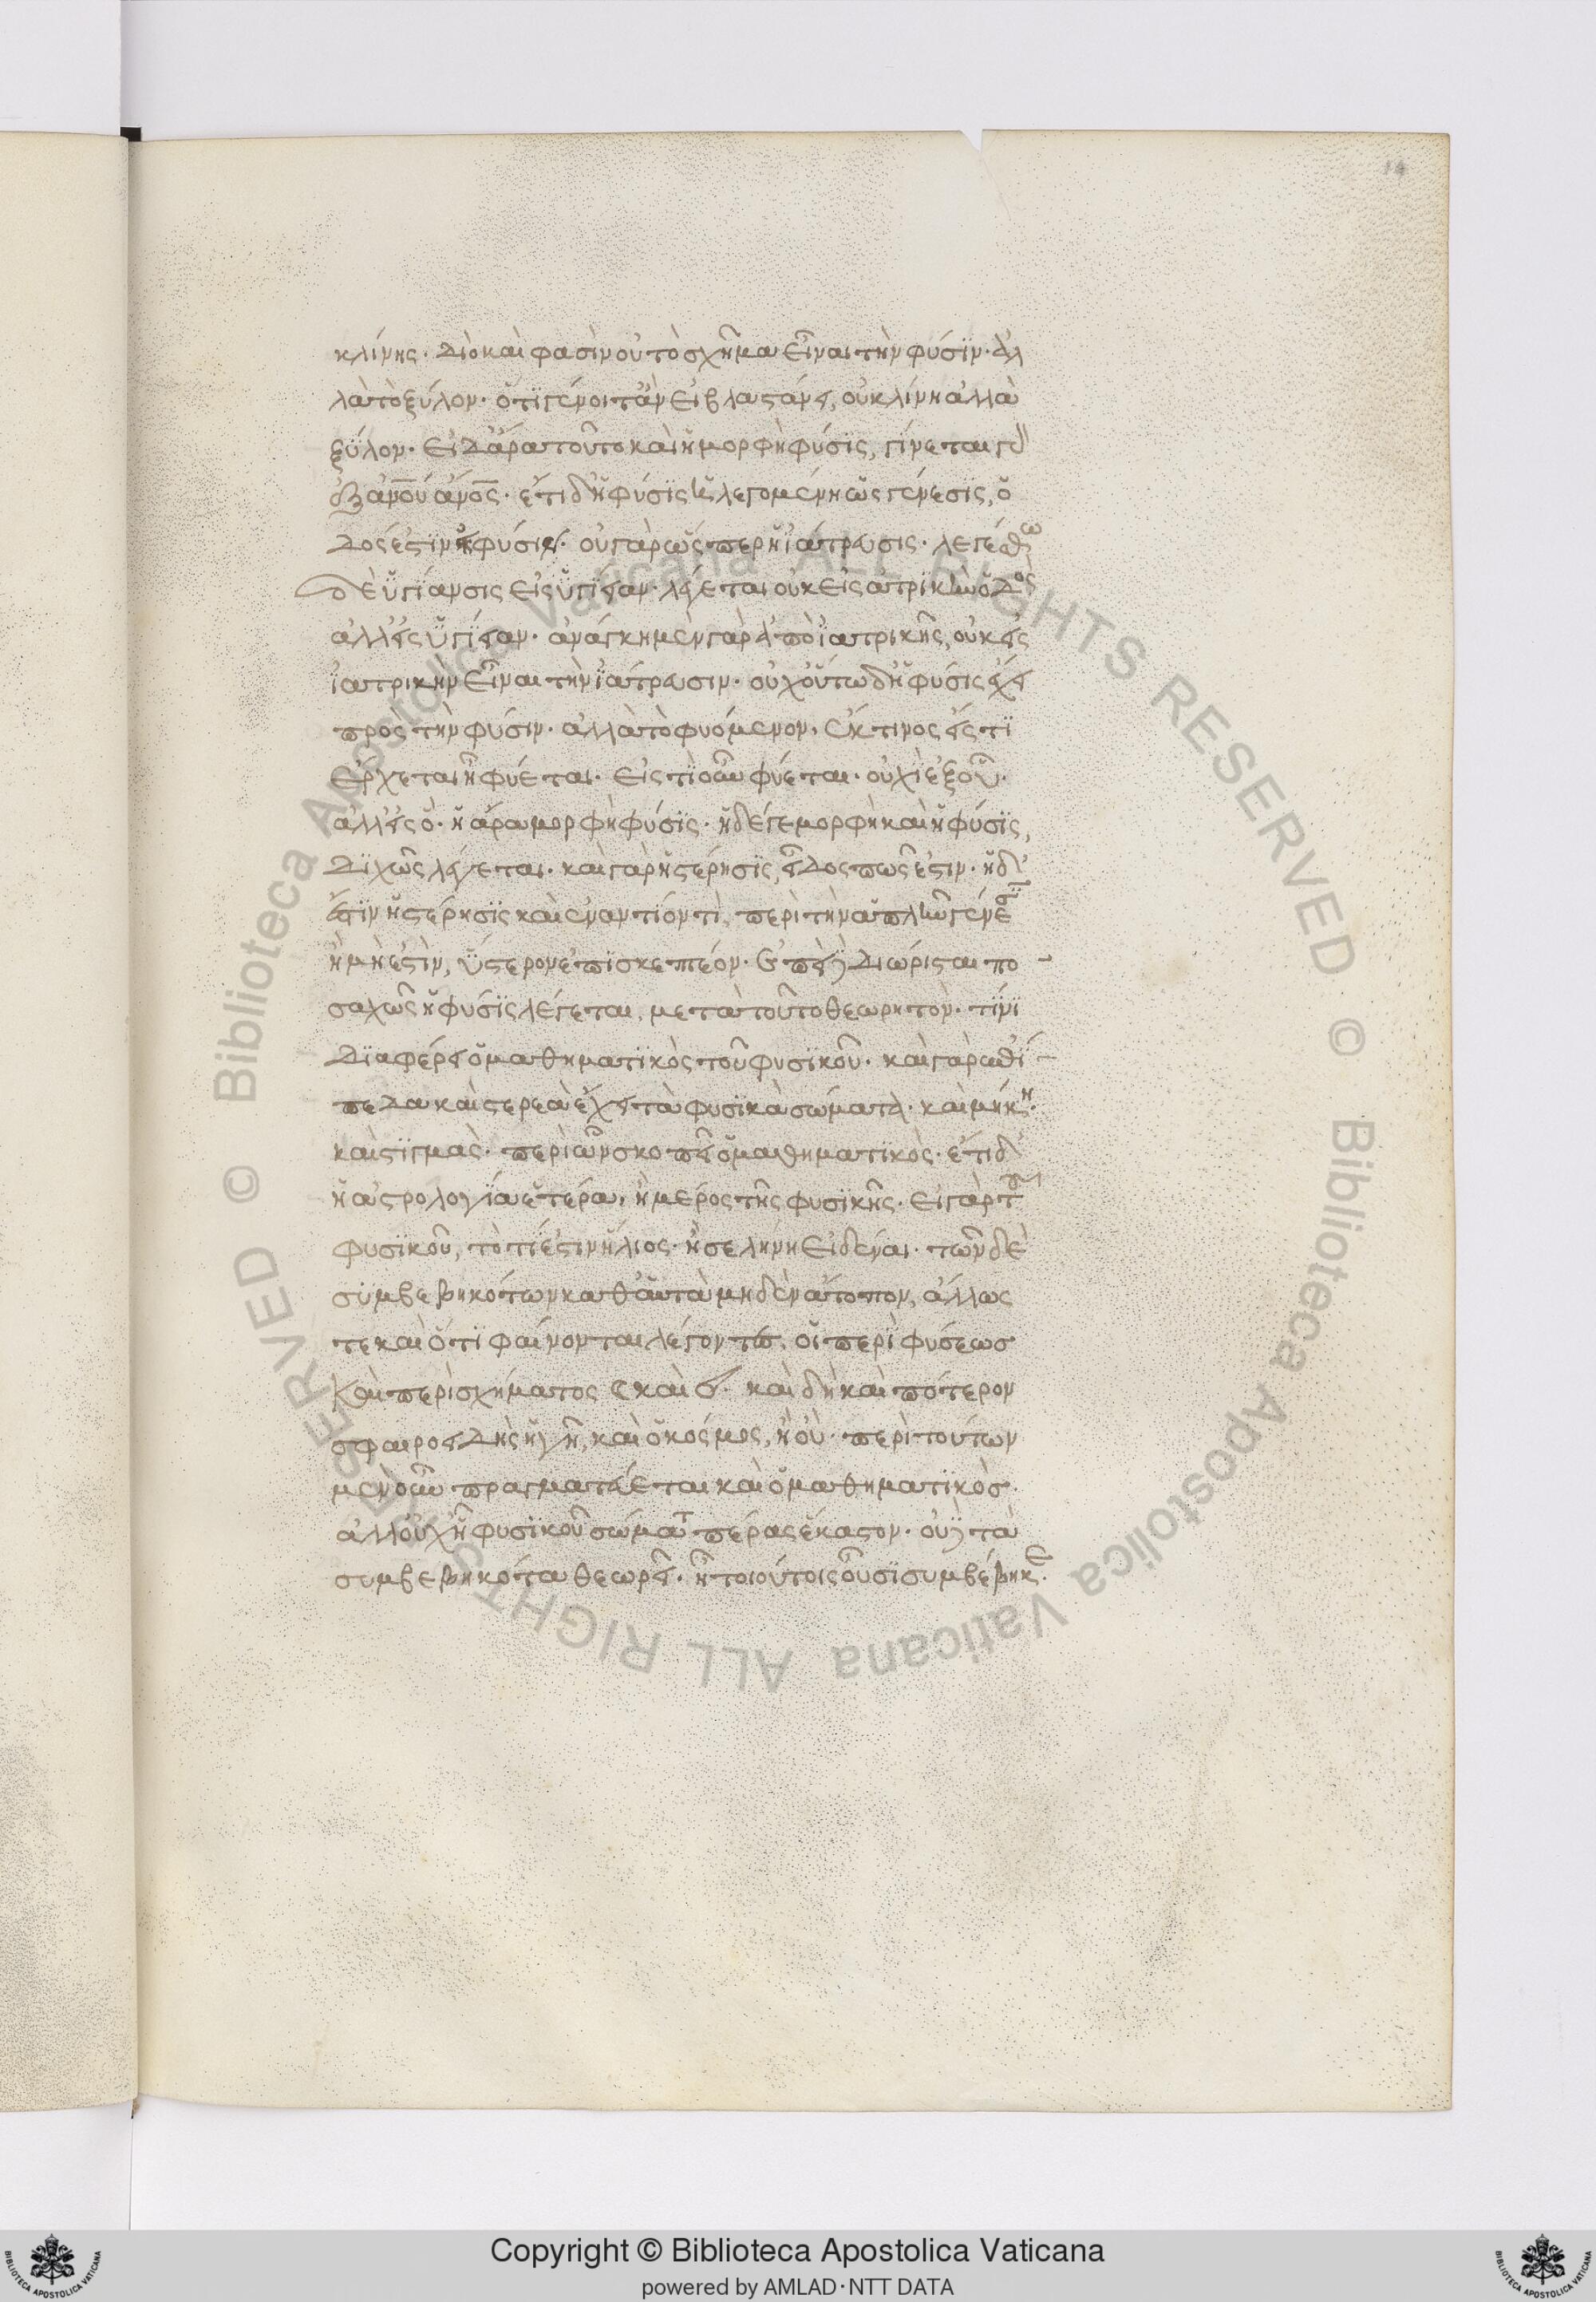 14
κλίνης· διὸ καὶ φασὶν οὐ τὸ σχῆμα εἶναι τὴν φύσϊν· ἀλ
λὰ τὸ ξύλον· ὅτϊ γένοιτ' ἂν εἰ βλαστάνει, οὐ κλίνη ἀλλὰ
ξύλον· εἰ δ' ἄρα τοῦτο καὶ ἡ μορφὴ φύσϊς, γίνεται γὰρ
ἐξ ἀν̅ο̅υ̅ ἄν̅ο̅ς̅· ἔτι δ' ἡ φύσϊς ἡ λεγομένη ὡς γένεσϊς, ὁ
δός ἐστϊν εἰς φύσιν· οὐ γὰρ ὥσπερ ἡ ϊάτρευσις· λεγέσθω
δὲ ὑγϊανσις εἰς ὑγϊείαν λέγεται οὐκ εἰς ατρϊκὴν ὁδὸς
ἀλλ' εἰς ὑγϊείαν· ἀνάγκη μὲν γὰρ ἀπὸ ϊατρικῆς, οὐκ εἰς
ϊατρικὴν εἶναι τὴν ϊάτρευσιν· οὐχ οὕτω δ' ἡ φύσϊς ἔχει
πρὸς τὴν φύσιν· ἀλλὰ τὸ φυόμενον, ἐκ τινος εἴς τϊ
ἔρχεται ᾗ φύεται· εἰς τὶ οὖν φύεται· οὐχὶ ἐξ οὗ·
ἀλλ' εἰς ὅ· ἡ ἄρα μορφὴ φύσϊς· ἡ δέ γε μορφὴ καὶ ἡ φύσϊς,
δϊχῶς λέγεται· καὶ γὰρ ἡ στέρησϊς, εἶδος πως ἐστιν· ἡ δ'
ἐστϊν ἡ στέρησϊς καὶ ἐναντίον τὶ, περὶ τὴν ἁπλῆν γένεσϊν
ἢ μὴ ἐστὶν, ὕστερον ἐπϊσκεπτέον· ἐπεὶ δὲ διώρισται πο
σαχῶς ἡ φύσϊς λέγεται, μετὰ τοῦτο θεωρητὸν· τϊνϊ
δϊαφέρει ὁ μαθηματϊκὸς τοῦ φυσϊκοῦ· καὶ γὰρ ἐπί
πεδα καὶ στερεὰ ἔχει τὰ φυσϊκὰ σώματα· καὶ μήκη·
καὶ στϊγμὰς· περὶ ὧν σκοπεῖ ὁ μαθηματϊκὸς· ἔτι δ'
ἡ ἀστρολογϊα ἑτέρα, ἢ μέρος τῆς φυσϊκῆς· εἰ γὰρ τοῦ
φυσϊκοῦ, τὸ τί ἐστιν ἥλιος· ἢ σελήνη εἰδέναι· τῶν δὲ
συμβεβηκότων καθ' αὑτὰ μηδὲν ἄτοπον, ἄλλως
τε καὶ ὅτϊ φαίνονται λέγοντες, οἱ περὶ φύσεως
καὶ περὶ σχήματος καὶ καὶ δὴ καὶ πότερον
σφαιροειδὴς ἡ γῆ, καὶ ὁ κόσμος, ἢ οὐ· περὶ τούτων
μὲν οὖν πραγματεύεται καὶ ὁ μαθηματϊκὸσ·
ἀλλ' οὐχ ᾗ φυσϊκοῦ σώματος πέρας ἕκαστον· οὐδὲ τὰ
συμβεβηκότα θεωρεῖ· ᾗ τοιούτοις οὖσϊ συμβέβηκε·
Copyright © Biblioteca Apostolica Vaticana
powered by AMLAD·NTT DATA